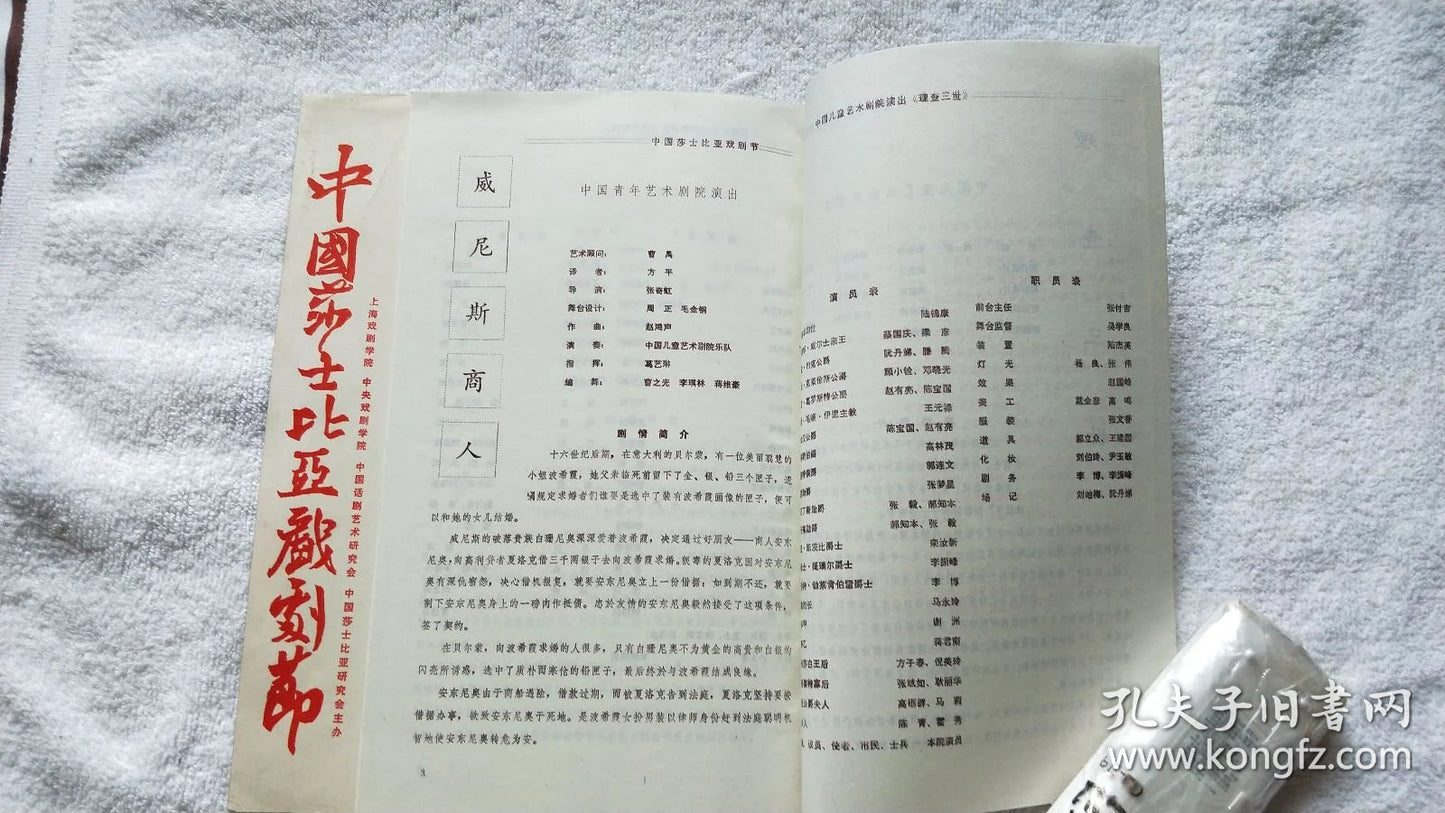 中國莎士比亞戲劇節
上海戏剧学院 中央戏剧学院 中国话剧艺术研究会 中国莎士比亚研究会主办
中国莎士比亚戏剧节
威尼斯商人
中国青年艺术剧院演出
艺术顾问： 曹禺
译者： 方平
导演： 张奇虹
舞台设计： 周正 毛金钢
作曲： 赵鸿声
演奏： 中国儿童艺术剧院乐队
指挥： 葛艺琳
编舞： 曹之光 李琪林 蒋维豪
剧情简介
十六世纪后期，在意大利的贝尔蒙，有一位美丽聪慧的
小姐波希霞，她父亲临死前留下了金、银、铅三个匣子，遗
嘱规定求婚者们谁要是选中了装有波希霞画像的匣子，便可
以和她的女儿结婚。
威尼斯的破落贵族白珊尼奥深深爱着波希霞，决定通过好朋友——商人安东
尼奥，向高利贷者夏洛克借三千两银子去向波希霞求婚。狠毒的夏洛克因对安东尼
奥有深仇宿怨，决心借机报复，就要安东尼奥立上一份借据，如到期不还，就要
割下安东尼奥身上的一磅肉作抵债。忠於友情的安东尼奥毅然接受了这项条件，
签了契约。
在贝尔蒙，向波希霞求婚的人很多，只有白珊尼奥不为黄金的高贵和白银的
闪亮所诱惑，选中了质朴而寒伧的铅匣子，最后终於与波希霞结成良缘。
安东尼奥由于商船遇险，借款过期，而被夏洛克告到法庭，夏洛克坚持要按
借据办事，欲致安东尼奥于死地。是波希霞女扮男装以律师身份赶到法庭聪明机
智地使安东尼奥转危为安。
3
中国儿童艺术剧院演出《理查三世》
演员表
陆锦康
·威尔士亲王 蔡国庆、梁彦
·约克公爵 阮丹娣、滕腾
·克莱伦斯公爵 顾小铨、邓晓光
·葛罗斯特公爵 赵有亮、陈宝国
·毛顿·伊里主教 王元禄
公爵 陈宝国、赵有亮
高林茂
郭连文
张梦显
张毅、郝知本
郝知本、张毅
·凯茨比爵士 栾汝新
·提瑞尔爵士 李振峰
·勃莱肯伯雷爵士 李博
马永玲
谢洲
蒋君南
白王后 方子春、倪美玲
寡后 张斌如、耿丽华
夫人 高语群、马莉
人 陈青、霍秀
议员、使者、市民、士兵 本院演员
职员表
前台主任 张付吉
舞台监督 吴学良
装置 陆杰英
灯光 杨良、张伟
效果 赵国峰
美工 蔡金彦 高鸣
服装 张文香
道具 郝立众、王建国
化妆 刘伯玲、尹玉敏
剧务 李博、李振峰
场记 刘岫梅、阮丹娣
孔夫子旧书网
www.kongfz.com